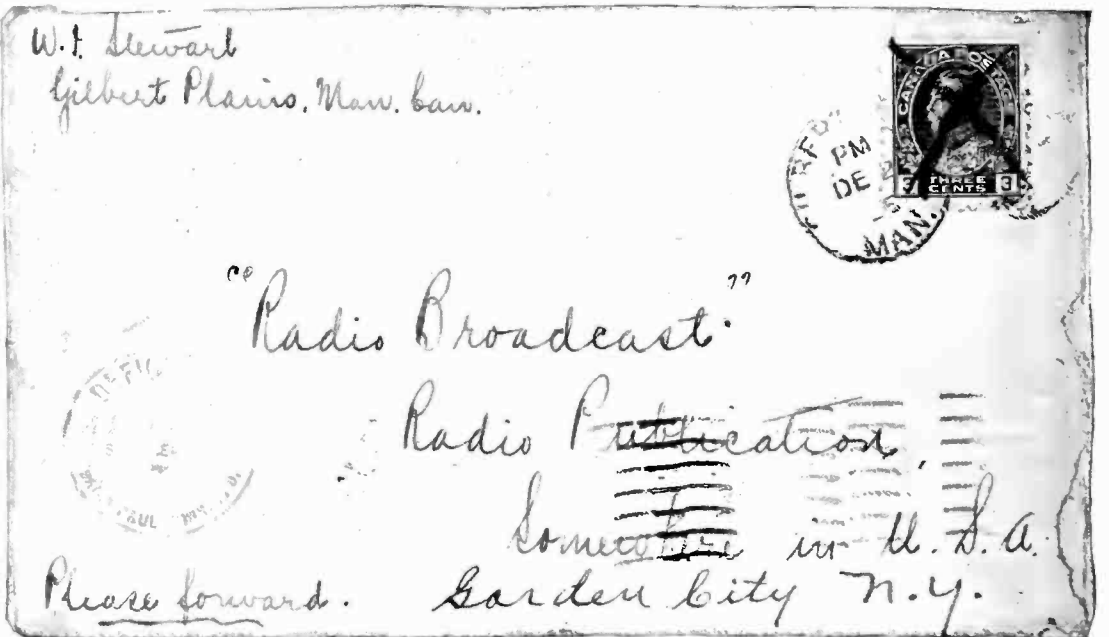 W.J. Stewart
Gilbert Plains, Man. Can.
CANADA POSTAGE
3 THREE CENTS 3
PM
DE 2
MAN.
"Radio Broadcast"
Radio Publication,
Somewhere in U.S.A.
PAUL
Please forward.
Garden City N.Y.